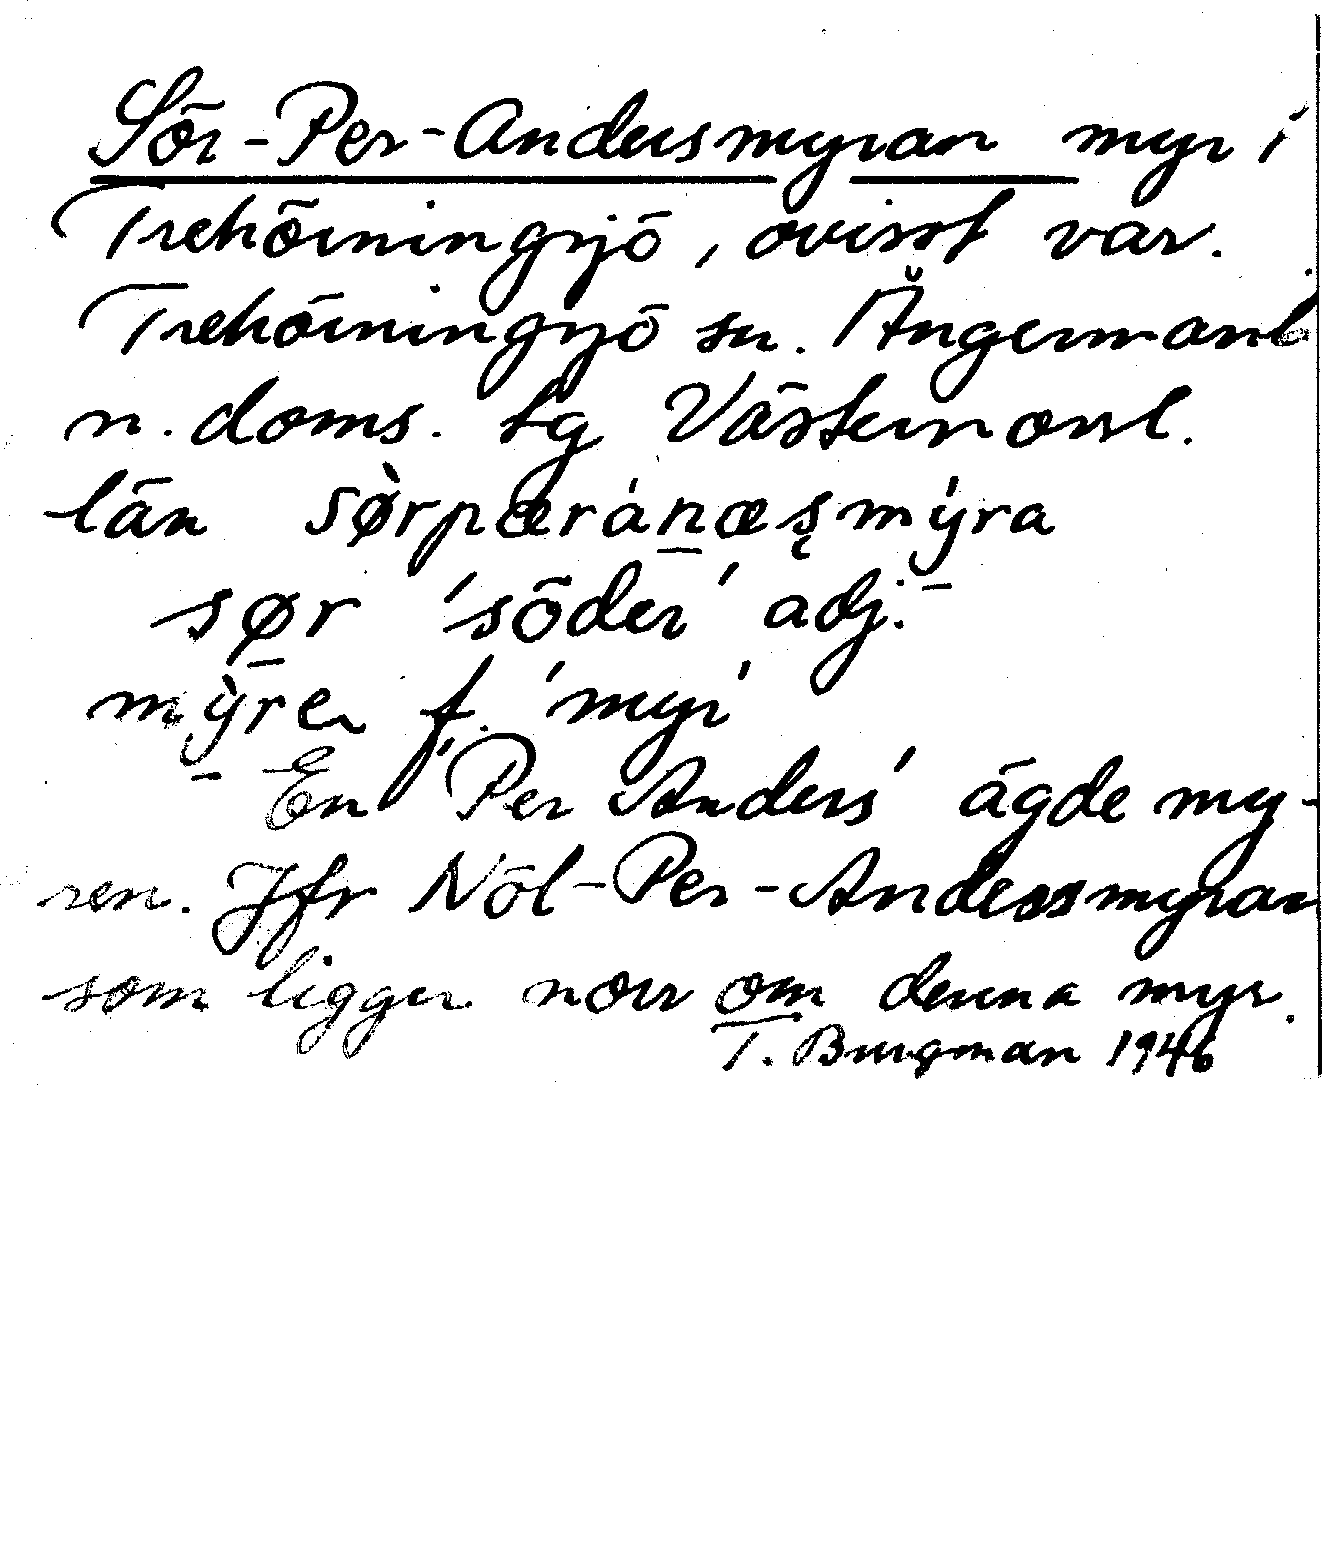 Sör-Per-Andersmyran myr i
Trehörningsjö, ovisst var.
Trehörningsjö sn. Ångermanl
n. doms. tg Västernorrl.
län sø̀rpæráṉæʂmýra
sør 'söder' adj.
mỳ̱rer f. 'myr'
En 'Per Anders' ägde my-
ren. Jfr Nöl-Per-Anderssmyran
som ligger norr om denna myr.
T. Burgman 1946